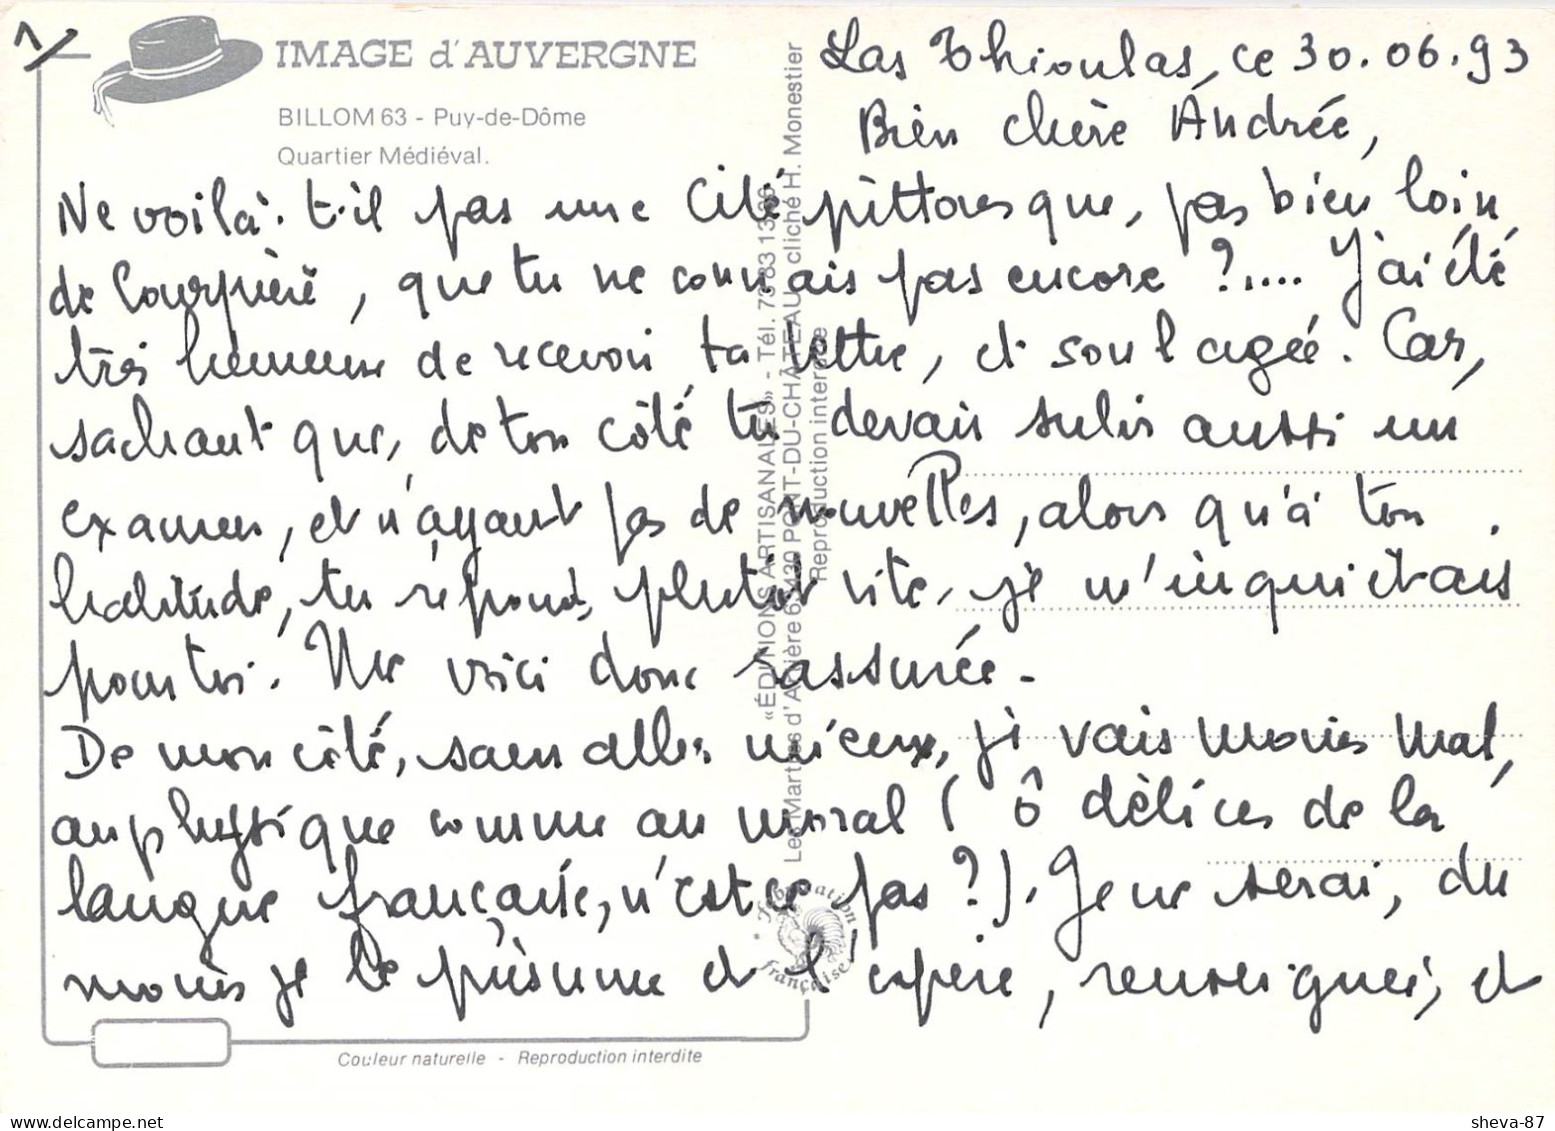 1/
IMAGE d'AUVERGNE
BILLOM 63 - Puy-de-Dôme
Quartier Médiéval.
Las Thioulas, ce 30.06.93
Bien chère Andrée,
Ne voilà-t-il pas une Cité pittoresque, pas bien loin
de Courpière, que tu ne connais pas encore ?.... J'ai été
très heureuse de recevoir ta lettre, et soulagée. Car,
sachant que, de ton côté tu devais subir aussi un
examen, et n'ayant pas de nouvelles, alors qu'à ton
habitude, tu réponds plutôt vite, je m'inquiétais
pour toi. Me voici donc rassurée.
De mon côté, sans aller mieux, je vais moins mal,
au physique comme au moral ( ô délices de la
langue française, n'est-ce pas ?). Je ne serai, du
moins je le présume et l'espère, renseignée, et
«ÉDITIONS ARTISANALES» - Tél. 73 83 13 66
Les Martres d'Artière 63430 PONT-DU-CHÂTEAU cliché H. Monestier
Reproduction interdite
Fabrication française
Couleur naturelle - Reproduction interdite
sheva-87